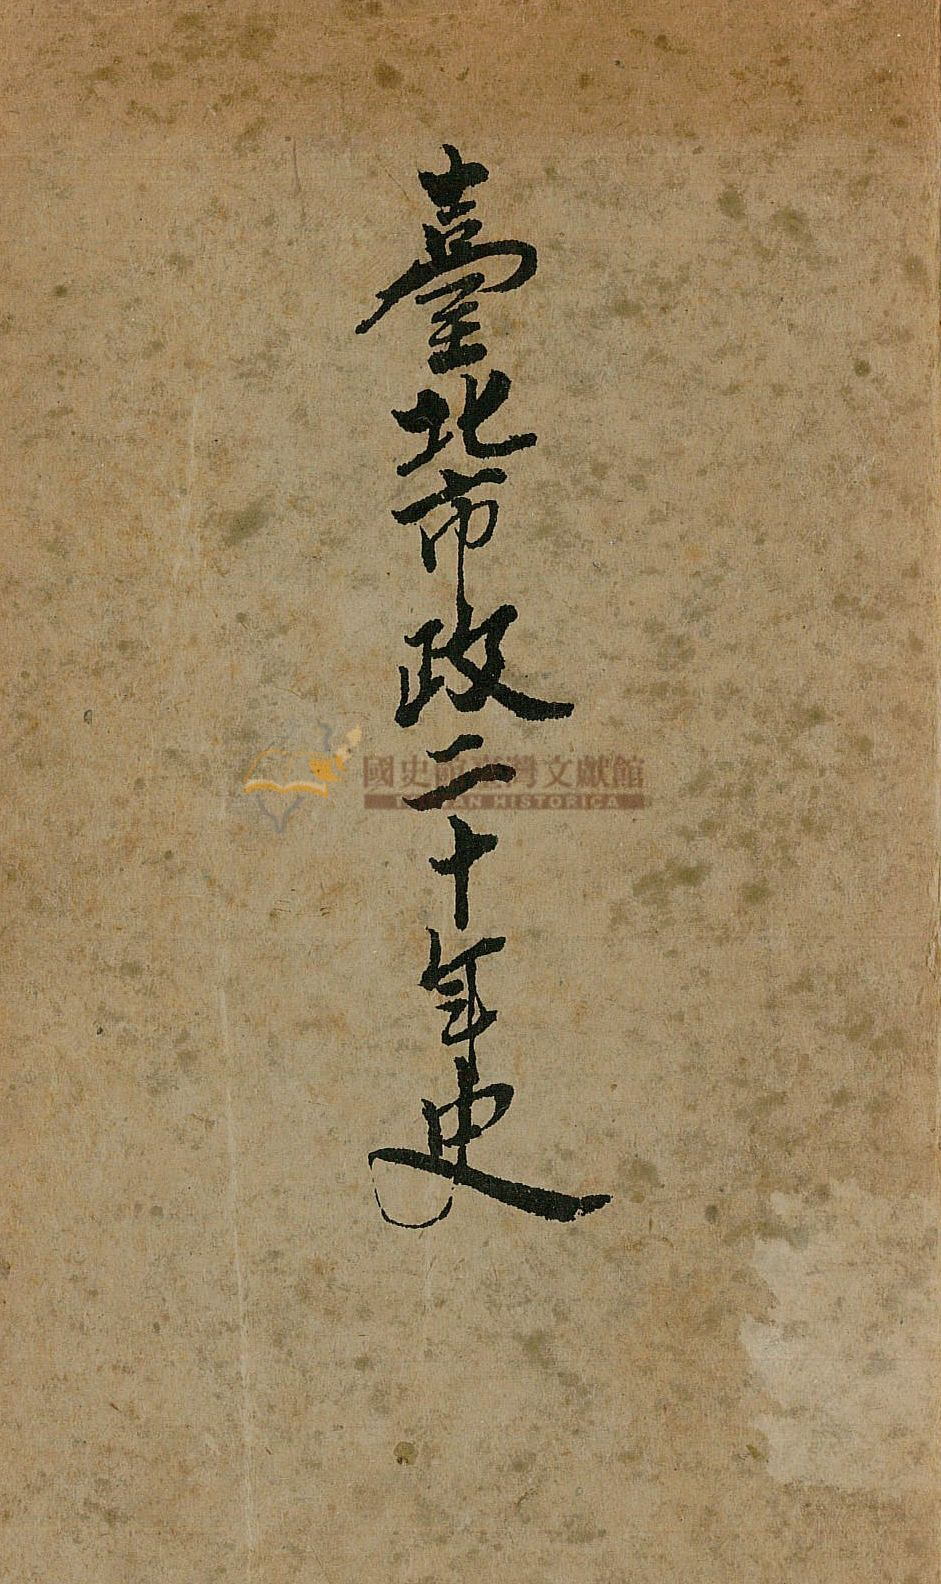 臺北市政二十年史
國史館臺灣文獻館
TAIWAN HISTORICA